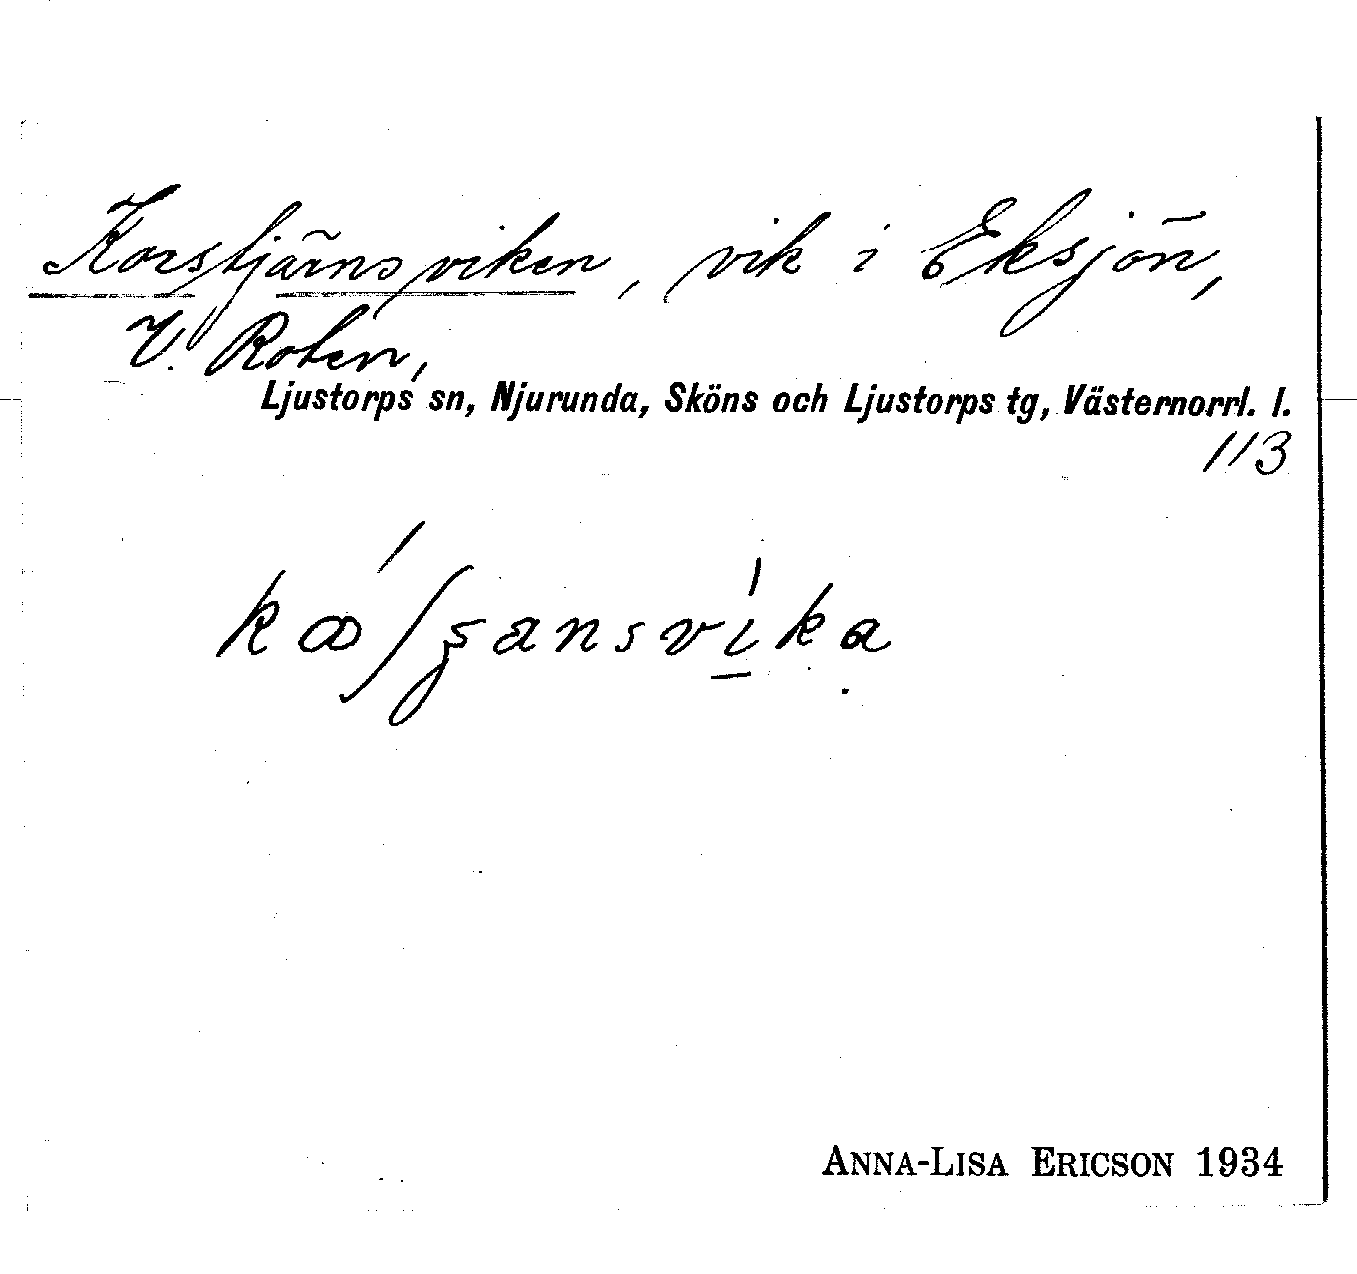 Korstjärnsviken, vik i Eksjön,
V. Roten,
Ljustorps sn, Njurunda, Sköns och Ljustorps tg, Västernorrl. l.
113
ANNA-LISA ERICSON 1934